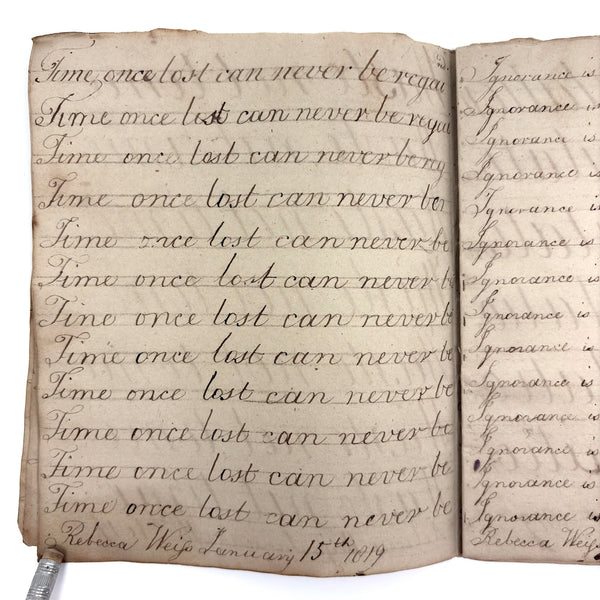 Time once lost can never be regai
Time once lost can never be regai
Time once lost can never be rg
Time once lost can never ber
Time once lost can never be
Time once lost can never be
Tine once lost can never be
Time once lost can never be
Time once lost can never be
Time once lost can never be
Time once lost can never be
Time once lost can never be
Rebecca Weiſs January 15th 1819
Ignorance is
Ignorance is
Ignorance is
Ignorance is
Ignorance is
Ignorance is
Ignorance is
Ignorance is
Ignorance is
Ignorance is
Ignorance is
Ignorance is
Ignorance is
Ignorance is
Rebecca Weiſs